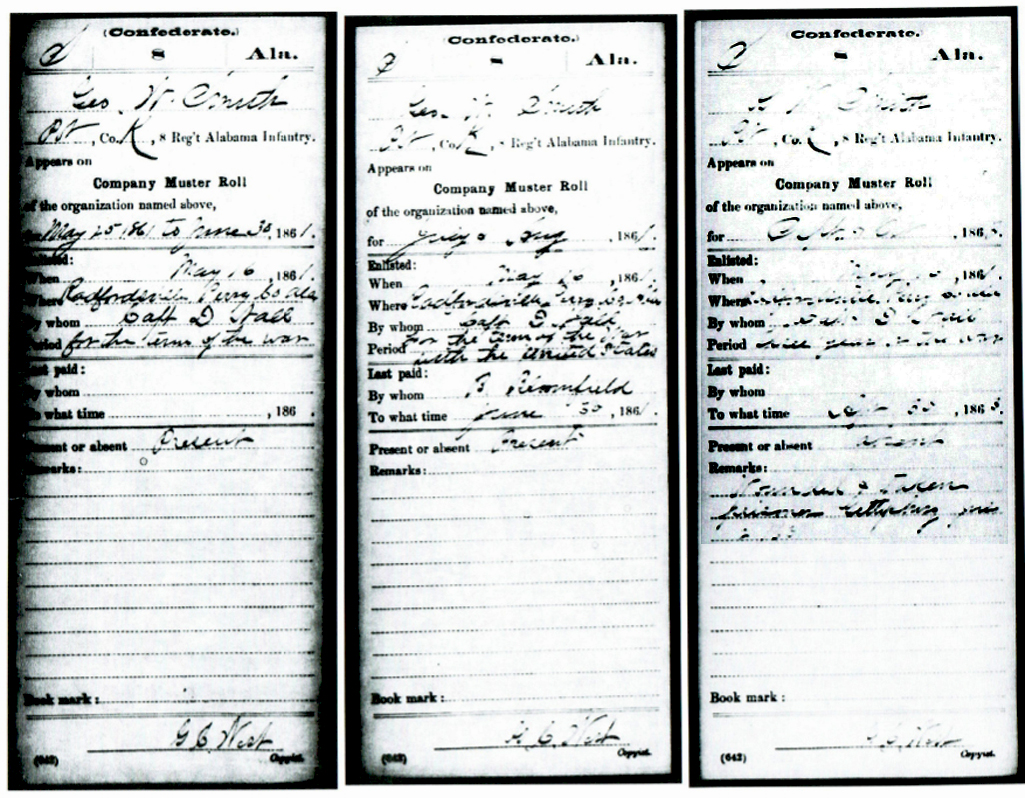 (Confederate.)
S 8 Ala.
Geo W. Smith
Pvt, Co. K, 8 Reg't Alabama Infantry.
Appears on
Company Muster Roll
of the organization named above,
May 25 1861 to June 30, 1861.
Enlisted:
When May 16, 1861.
Where Radfordsville Perry Co Ala
By whom Capt D Hall
Period for the term of the war
Last paid:
By whom
To what time , 186 .
Present or absent Present
Remarks:
Book mark:
G C West
(642) Copyist.
(Confederate.)
S 8 Ala.
Geo. W. Smith
Pvt, Co. K, 8 Reg't Alabama Infantry.
Appears on
Company Muster Roll
of the organization named above,
for July & Aug, 1861.
Enlisted:
When May 16, 1861.
Where Radfordsville Perry Co Ala
By whom Capt D Hall
Period for the term of the war
with the United States
Last paid:
By whom B Bloomfield
To what time June 30, 1861.
Present or absent Present
Remarks:
Book mark:
G. C. West
(642) Copyist.
(Confederate.)
S 8 Ala.
G W Smith
Pvt, Co. K, 8 Reg't Alabama Infantry.
Appears on
Company Muster Roll
of the organization named above,
for , 1863.
Enlisted:
When May , 1861.
Where Perry
By whom Capt D Hall
Period the war
Last paid:
By whom
To what time , 1863.
Present or absent absent
Remarks:
Wounded & taken
prisoner Gettysburg
Book mark:
G C West
(642) Copyist.